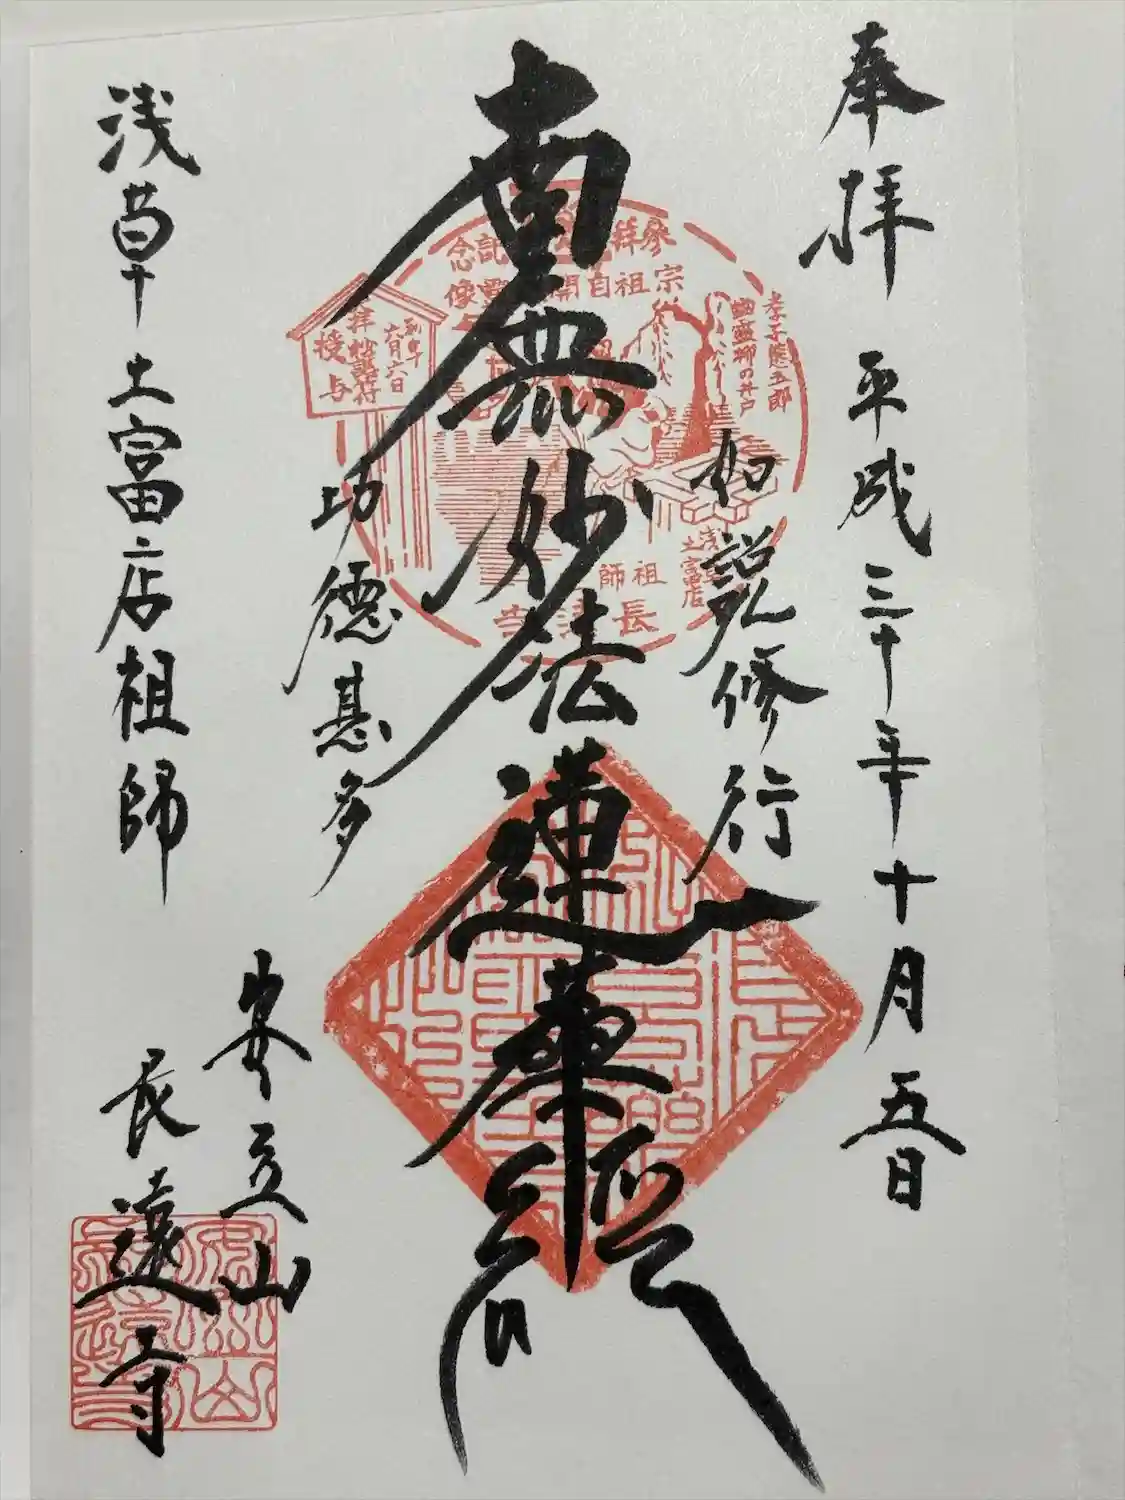 奉拝 平成三十年十月五日
如説修行
南無妙法蓮華経
功徳甚多
浅草 土富店祖師
安立山
長遠寺
孝子熊五郎
幽霊柳の井戸
宗祖自開
六月六日
授与
浅草
土富店
祖師